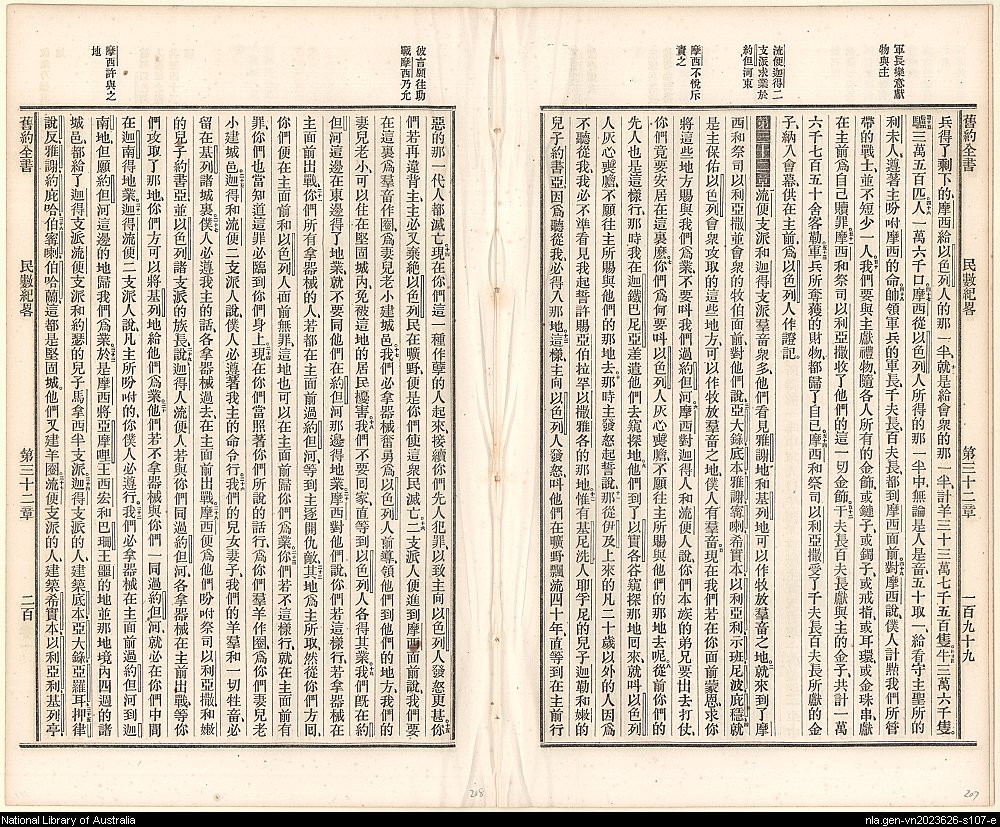 軍長樂意獻
物與主
流便迦得二
支派求業於
約但河東
摩西不悅斥
責之
舊約全書 民數紀畧 第三十二章 一百九十九
兵得了剩下的摩西給以色列人的那一半就是給會衆的那一半計羊三十三萬七千五百隻牛三萬六千隻
驢三萬五百匹人一萬六千口摩西從以色列人所得的那一半中無論是人是畜五十取一給看守主聖所的
利未人遵著主吩咐摩西的命帥領軍兵的軍長千夫長百夫長都到摩西面前對摩西說僕人計點我們所管
帶的戰士並不短少一人我們要與主獻禮物隨各人所有的金飾或鏈子或鐲子或戒指或耳環或金珠串獻
在主前爲自己贖罪摩西和祭司以利亞撒收了他們的這一切金飾千夫長百夫長獻與主的金子共計一萬
六千七百五十舍客勒軍兵所奪獲的財物都歸了自己摩西和祭司以利亞撒受了千夫長百夫長所獻的金
子納入會幕供在主前爲以色列人作證記
第三十二章 流便支派和迦得支派羣畜衆多他們看見雅謝地和基列地可以作牧放羣畜之地就來到了摩
西和祭司以利亞撒並會衆的牧伯面前對他們說亞大錄底本雅謝甯喇希實本以利亞利示班尼波庇穩就
是主保佑以色列會衆攻取的這些地方可以作牧放羣畜之地僕人有羣畜現在我們若在你面前蒙恩求你
將這些地方賜與我們爲業不要叫我們過約但河摩西對迦得人和流便人說你們本族的弟兄要出去打仗
你們竟要安居在這裏麼你們爲何要叫以色列人灰心喪膽不願往主所賜與他們的那地去呢從前你們的
先人也是這樣行那時我在迦鐵巴尼亞差遣他們去窺探地他們到了以實各谷窺探那地囘來就叫以色列
人灰心喪膽不願往主所賜與他們的那地去那時主發怒起誓說那從伊及上來的凡二十歲以外的人因爲
不聽從我我必不準看見我起誓許賜亞伯拉罕以撒雅各的那地惟有基尼洗人耶孚尼的兒子迦勒和嫩的
兒子約書亞因爲聽從我必得入那地這樣主向以色列人發怒叫他們在曠野飄流四十年直等到在主前行
207
彼言願往助
戰摩西乃允
摩西許與之
地
惡的那一代人都滅亡現在你們這一種作孽的人起來接續你們先人犯罪以致主向以色列人發怒更甚你
們若再違背主主必又棄絕以色列民在曠野便是你們使這衆民滅亡二支派人便進到摩西面前說我們要
在這裏爲羣畜作圈爲妻兒老小建城邑我們必拿器械奮勇爲以色列人前導領他們到他們的地方我們的
妻兒老小可以住在堅固城內免被這地的居民擾害我們不要囘家直等到以色列人各得其業我們旣在約
但河這邊在東邊得了地業就不要同他們在約但河那邊得地業摩西對他們說你們若這樣行若拿器械在
主面前出戰你們所有拿器械的人若都在主面前過約但河等到主逐開仇敵其地爲主所取然從你們方囘
你們便在主面前和以色列人面前無罪這地也可以在主面前歸你們爲業你們若不這樣行就在主面前有
罪你們也當知道這罪必臨到你們身上現在你們當照著你們所說的話行爲你們羣羊作圈爲你們妻兒老
小建城邑迦得和流便二支派人說僕人必遵著我主的命令行我們的兒女妻子我們的羊羣和一切牲畜必
留在基列諸城裏僕人必遵我主的話各拿器械過去在主面前出戰摩西便爲他們吩咐祭司以利亞撒和嫩
的兒子約書亞並以色列諸支派的族長說迦得人流便人若與你們同過約但河各拿器械在主前出戰等你
們攻取了那地你們方可以將基列地給他們爲業他們若不拿器械與你們一同過約但河就必在你們中間
在迦南得地業迦得流便二支派人說凡主所吩咐的你僕人必遵行我們必拿器械在主面前過約但河到迦
南地但願約但河這邊的地歸我們爲業於是摩西將亞摩哩王西宏和巴珊王噩的地並那地境內四週的諸
城邑都給了迦得支派流便支派和約瑟的兒子馬拿西半支派迦得支派的人建築底本亞大錄亞羅耳押律
說反雅謝約庇哈伯甯喇伯哈蘭這都是堅固城他們又建羊圈流便支派的人建築希實本以利亞利基列亭
舊約全書 民數紀畧 第三十二章 二百
208
National Library of Australia
nla.gen-vn2023626-s107-e